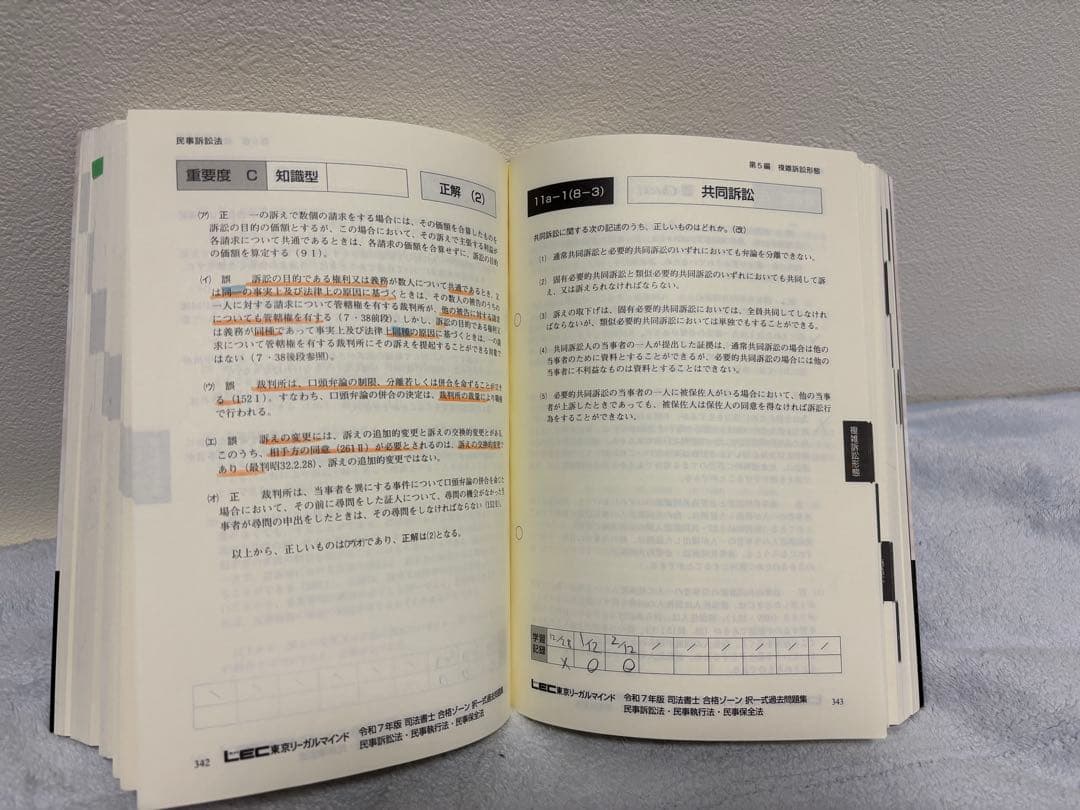 民事訴訟法
重要度 C 知識型
正解 (2)
(ア) 正 一の訴えで数個の請求をする場合には、その価額を合算したものを
訴訟の目的の価額とするが、この場合において、その訴えで主張する利益が
各請求について共通であるときは、各請求の価額を合算せずに、訴訟の目的
の価額を算定する(9Ⅰ)。
(イ) 誤 訴訟の目的である権利又は義務が数人について共通であるとき、又
は同一の事実上及び法律上の原因に基づくときは、その数人の被告のうちの
一人に対する請求について管轄権を有する裁判所が、他の被告に対する請求
についても管轄権を有する(7・38前段)。しかし、訴訟の目的である権利又
は義務が同種であって事実上及び法律上同種の原因に基づくときは、一の請
求について管轄権を有する裁判所にその訴えを提起することができる対象で
はない(7・38後段参照)。
(ウ) 誤 裁判所は、口頭弁論の制限、分離若しくは併合を命ずることができ
る(152Ⅰ)。すなわち、口頭弁論の併合の決定は、裁判所の裁量により職権
で行われる。
(エ) 誤 訴えの変更には、訴えの追加的変更と訴えの交換的変更とがある。
このうち、相手方の同意(261Ⅱ)が必要とされるのは、訴えの交換的変更で
あり(最判昭32.2.28)、訴えの追加的変更ではない。
(オ) 正 裁判所は、当事者を異にする事件について口頭弁論の併合を命じた
場合において、その前に尋問をした証人について、尋問の機会がなかった当
事者が尋問の申出をしたときは、その尋問をしなければならない(152Ⅱ)。
以上から、正しいものは(ア)(オ)であり、正解は(2)となる。
342 LEC東京リーガルマインド 令和7年版 司法書士 合格ゾーン 択一式過去問題集
民事訴訟法・民事執行法・民事保全法
第5編 複雑訴訟形態
11a-1(8-3) 共同訴訟
共同訴訟に関する次の記述のうち、正しいものはどれか。(改)
(1) 通常共同訴訟と必要的共同訴訟のいずれにおいても弁論を分離できない。
(2) 固有必要的共同訴訟と類似必要的共同訴訟のいずれにおいても共同して訴
え、又は訴えられなければならない。
(3) 訴えの取下げは、固有必要的共同訴訟においては、全員共同してしなけれ
ばならないが、類似必要的共同訴訟においては単独でもすることができる。
(4) 共同訴訟人の当事者の一人が提出した証拠は、通常共同訴訟の場合は他の
当事者のために資料とすることができるが、必要的共同訴訟の場合には他の
当事者に不利益なものは資料とすることはできない。
(5) 必要的共同訴訟の当事者の一人に被保佐人がいる場合において、他の当事
者が上訴したときであっても、被保佐人は保佐人の同意を得なければ訴訟行
為をすることができない。
複雑訴訟形態
学習記録 12/28 1/12 2/12 / / / / / / /
× ○ ○
LEC東京リーガルマインド 令和7年版 司法書士 合格ゾーン 択一式過去問題集 343
民事訴訟法・民事執行法・民事保全法